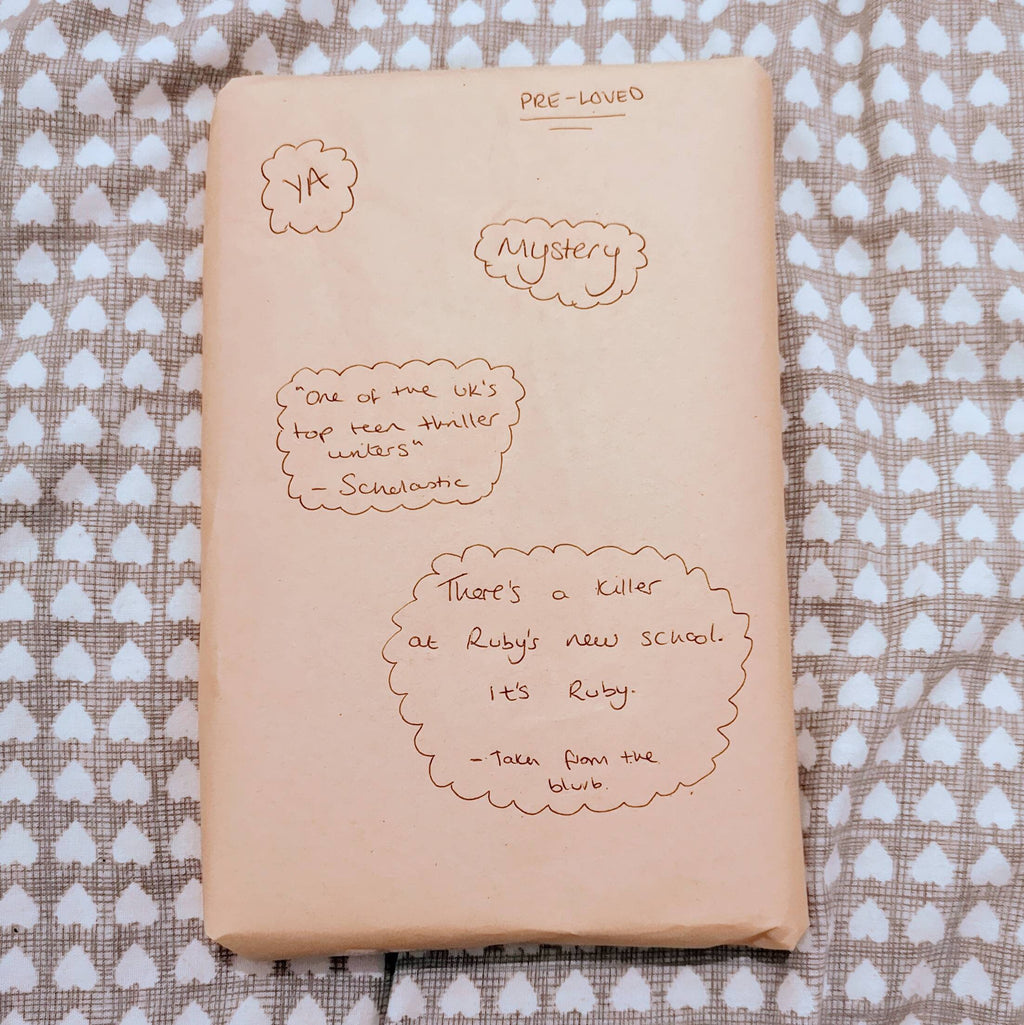 PRE-LOVED
YA
Mystery
"One of the UK's
top teen thriller
writers"
- Scholastic
There's a killer
at Ruby's new school.
It's Ruby.
- Taken from the
blurb.